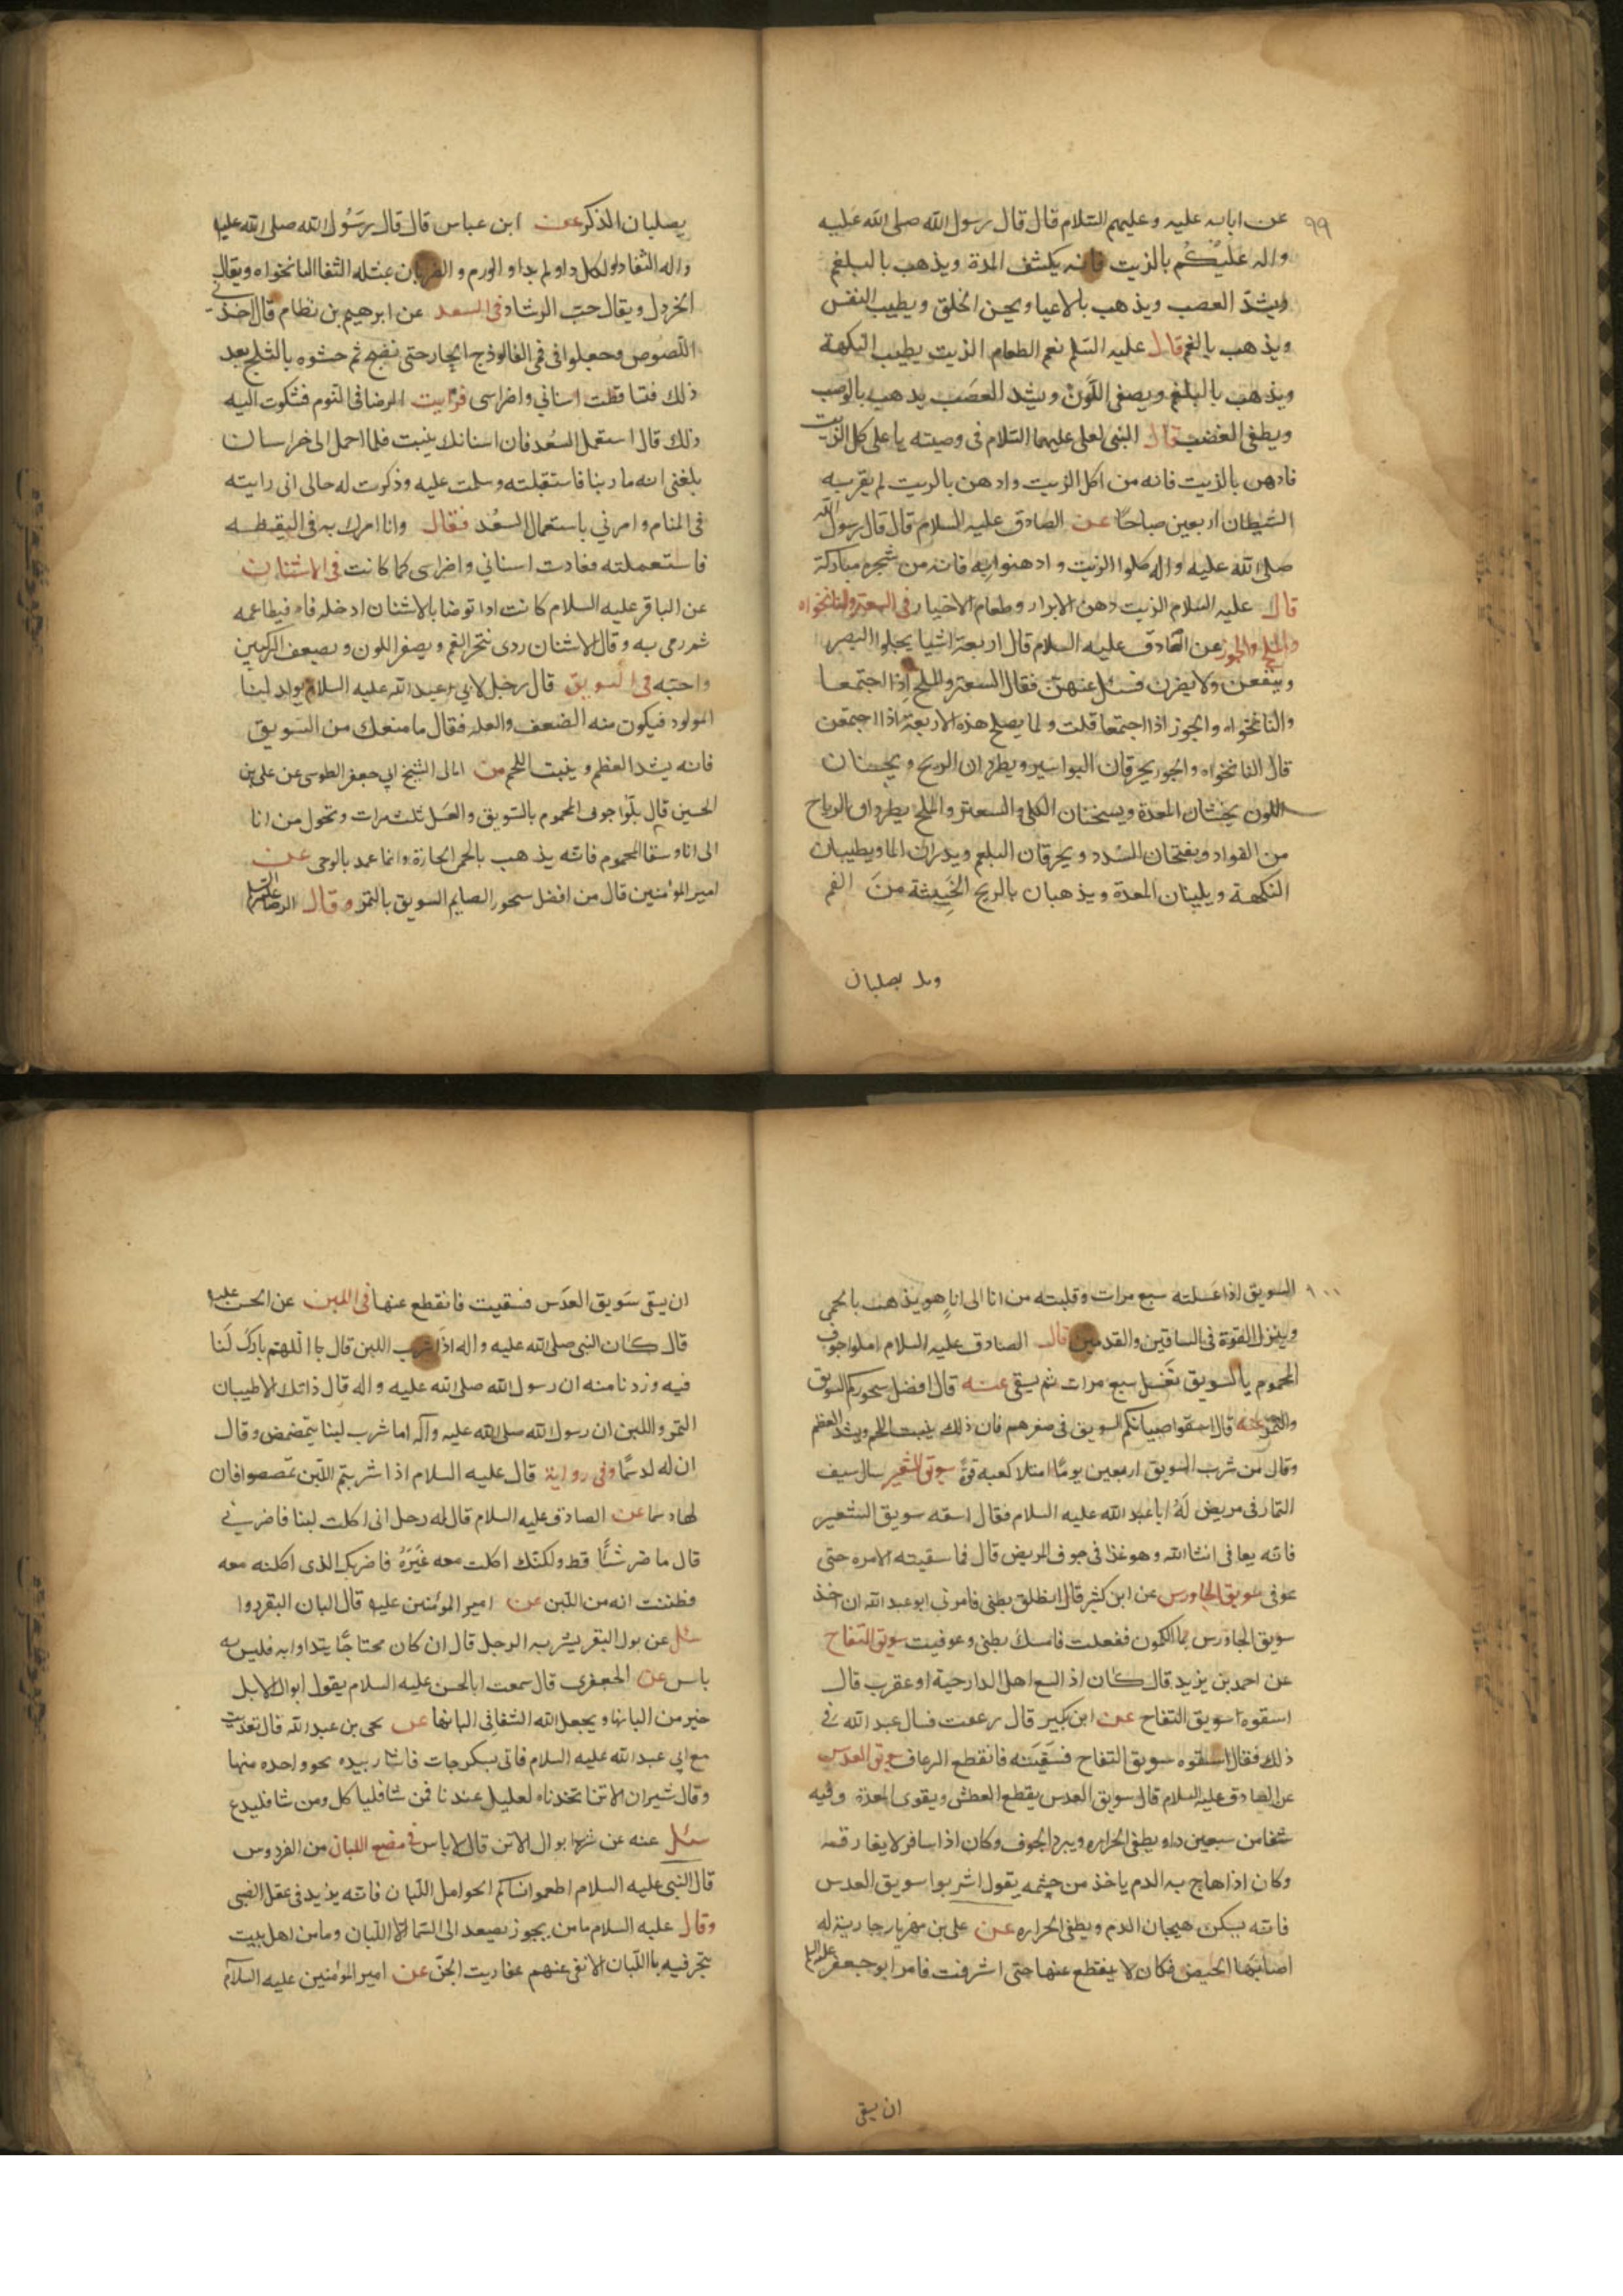 ٩٩
عن ابائه عليه وعليهم السلام قال قال رسول الله صلى الله عليه
واله عليكم بالزيت فانه يكشف المرة ويذهب بالبلغم
ويشد العصب ويذهب بالاعيا ويحسن الخلق ويطيب النفس
ويذهب بالغم قال عليه السلم نعم الطعام الزيت يطيب النكهة
ويذهب بالبلغم ويصفى اللون ويشد العصب يذهب بالوصب
ويطفى الغضب قال النبى لعلى عليهما السلام فى وصيته يا على كل الزيت
فادهن بالزيت فانه من اكل الزيت وادهن بالزيت لم يقربه
الشيطان اربعين صباحًا عن الصادق عليه السلام قال قال رسول الله
صلى الله عليه واله كلوا الزيت وادهنوا به فانه من شجرة مباركة
قال عليه السلام الزيت دهن الابرار وطعام الاخيار فى السعتر والنانخواه
والملح والجوز عن الصادق عليه السلام قال اربعة اشيا يجلوا البصر
وينفعن ولا يضرن فسئل عنهن فقال السعتر والملح اذا اجتمعا
والنانخواه والجوز اذا اجتمعا قلت ولما يصلح هذه الاربعة اذا اجتمعن
قال النانخواه والجوز يحرقان البواسير ويطردان الريح ويحسنان
اللون يخشنان المعدة ويسخنان الكلى والسعتر والملح يطردان الرياح
من الفواد ويفتحان السدد ويحرقان البلغم ويدران الما ويطيبان
النكهة ويلينان المعدة ويذهبان بالريح الخبيثة من الفم
يصلبان
يصلبان الذكر عن ابن عباس قال قال رسول الله صلى الله عليه
الخردل ويقال حب الرشاد فى السعد عن ابرهيم بن نظام قال اخذنى
اللصوص وجعلوا فى فمى الفالوذج الحار حتى نضج ثم حشوه بالثلج بعد
ذلك فتساقطت اسناني واضراسى فرايت الرضا فى النوم فشكوت اليه
ذلك قال استعمل السعد فان اسنانك ينبت فلما احمل الى خراسان
بلغنى انه مار بنا فاستقبلته وسلمت عليه وذكرت له حالى انى رايته
فى المنام وامرني باستعمال السعد فقال وانا امرك به فى اليقظه
فاستعملته فعادت اسناني واضراسى كما كانت فى الاشنان
عن الباقر عليه السلام كانت اذا توضا بالاشنان ادخله فاه فيطاعمه
ثم رمى به وقال الاشنان ردى يبخر الفم ويصفر اللون ويضعف الركبتين
واحبه فى السويق قال رجل لابي عبد الله عليه السلام يولد لينا
المولود فيكون منه الضعف والعله فقال ما منعك من السويق
فانه يشد العظم وينبت اللحم من امالى الشيخ ابي جعفر الطوسى عن على بن
الحسين قال بلّوا جوف المحموم بالسويق والعسل ثلث مرات وتحول من انا
الى انا وسقا المحموم فانه يذهب بالحمى الحارة وانما عمد بالوحى عن
امير المؤمنين قال من افضل سحور الصايم السويق بالتمر وقال الرضا عليه السلم
١٠٠
السويق اذا غسلته سبع مرات وقلبته من انا الى انا هو يذهب بالحمى
وينزل القوة فى الساقين والقدمين قال الصادق عليه السلام املوا جوف
المحموم بالسويق تغسل سبع مرات ثم يسقى عنه قال افضل سحوركم السويق
والتمر عنه قال اسقوا صبيانكم السويق فى صغرهم فان ذلك ينبت اللحم ويشد العظم
وقال من شرب السويق اربعين يومًا امتلا كعبه قوة سويق الشعير سال سيف
التمار فى مريض له ابا عبد الله عليه السلام فقال اسقه سويق الشعير
فانه يعافى انشا الله وهو غذا فى جوف المريض قال فاسقيته الامره حتى
عوفى سويق الجاورس عن ابن كثير قال انطلق بطنى فامرنى ابو عبد الله ان اخذ
سويق الجاورس بما الكمون ففعلت فامسك بطنى وعوفيت سويق التفاح
عن احمد بن يزيد قال كان اذ السع اهل الدار حية او عقرب قال
اسقوه سويق التفاح عن ابن بكير قال رعفت فسال عبد الله فى
ذلك فقال اسقوه سويق التفاح فسقيته فانقطع الرعاف سويق العدس
عن الصادق عليه السلام قال سويق العدس يقطع العطش ويقوى المعدة وفيه
شفا من سبعين داو يطفى الحراره ويبرد الجوف وكان اذا سافر لا يفارقه
وكان اذا هاج به الدم ياخذ من حشمه يقول اشربوا سويق العدس
فانه يسكن هيجان الدم ويطفى الحراره عن على بن مهزيار جارية له
اصابها الحيض فكان لا ينقطع عنها حتى اشرفت فامر ابو جعفر عليه السلم
ان يسقى
ان يسقى سويق العدس فسقيت فانقطع عنها فى اللبن عن الحسن عليه
قال كان النبى صلى الله عليه واله اذا شرب اللبن قال اللهم بارك لنا
فيه وزدنا منه ان رسول الله صلى الله عليه واله قال ذانك الاطيبان
التمر واللبن ان رسول الله صلى الله عليه وآله اما شرب لبنا يتمضمض وقال
ان له لدسمًا وفى رواية قال عليه السلام اذا شربتم اللبن تمصصوا فان
لها دسما عن الصادق عليه السلام قال له رجل انى اكلت لبنا فاضرنى
قال ما ضر شئًا قط ولكنك اكلت معه غيره فاضر بك الذى اكلته معه
فظننت انه من اللبن عن امير المومنين عليه قال البان البقر دوا
سئل عن بول البقر يشربه الرجل قال ان كان محتاجًا يتداوا به فليس به
باس عن الجعفرى قال سمعت ابا الحسن عليه السلام يقول ابوال الابل
خير من البانها ويجعل الله الشفا فى البانها عن يحى بن عبد الله قال تغديت
مع ابي عبد الله عليه السلام فاتى بسكرجات فاشار بيده نحو واحده منها
وقال شيران الاتن اتخذناه لعليل عندنا فمن شا فلياكل ومن شا فليدع
سئل عنه عن شرب ابوال الاتن قال لا باس فى مضغ اللبان من الفردوس
قال النبى عليه السلام اطعموا نساكم الحوامل اللبان فانه يزيد فى عقل الصبى
وقال عليه السلام ما من بجوز يصعد الى السما الا اللبان وما من اهل بيت
يتجر فيه باللبان الا نفى عنهم عفاريت الجن عن امير المؤمنين عليه السلام